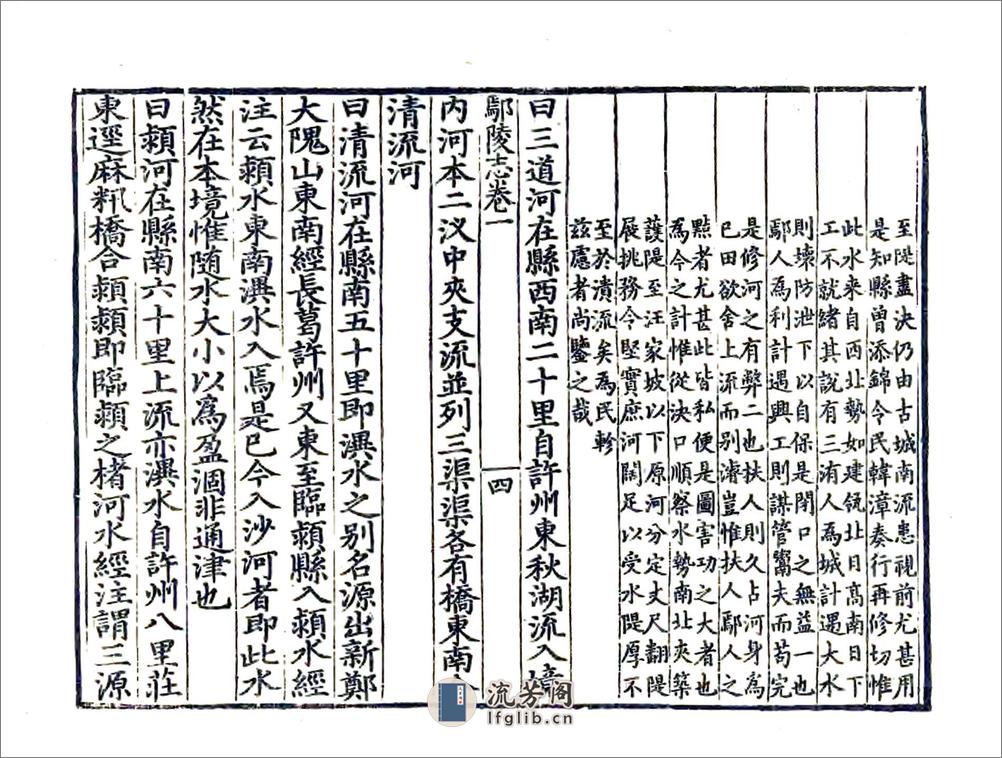 至隄盡決仍由古城南流患視前尤甚用
是知縣曾添錦令民韓漳奏行再修切惟
此水来自西北勢如建瓴北日髙南日下
工不就緒其說有三洧人為城計遇大水
則壊防泄下以自保是閉口之無益一也
鄢人為利計遇興工則謀管籥夫而苟完
是修河之有弊二也扶人則久占河身為
已田欲舍上流而别濬豈惟扶人鄢人之
黠者尤甚此皆私便是圖害功之大者也
為今之計惟從決口順察水勢南北夾築
護隄至汪家坡以下原河分定丈尺翻隄
展挑務令堅實庶河闊足以受水隄厚不
至於潰流矣為民軫
茲慮者尚鑒之哉
曰三道河在縣西南二十里自許州東秋湖流入境
鄢陵志卷一 四
內河本二汊中夾支流並列三渠渠各有橋東南
清流河
曰清流河在縣南五十里即潩水之别名源出新鄭
大隗山東南經長葛許州又東至臨潁縣入潁水經
注云潁水東南潩水入焉是已今入沙河者即此水
然在本境惟隨水大小以為盈涸非通津也
曰潁河在縣南六十里上流亦潩水自許州八里莊
東逕麻籸橋合潁潁即臨潁之楮河水經注謂三源
流芳阁
lfglib.cn